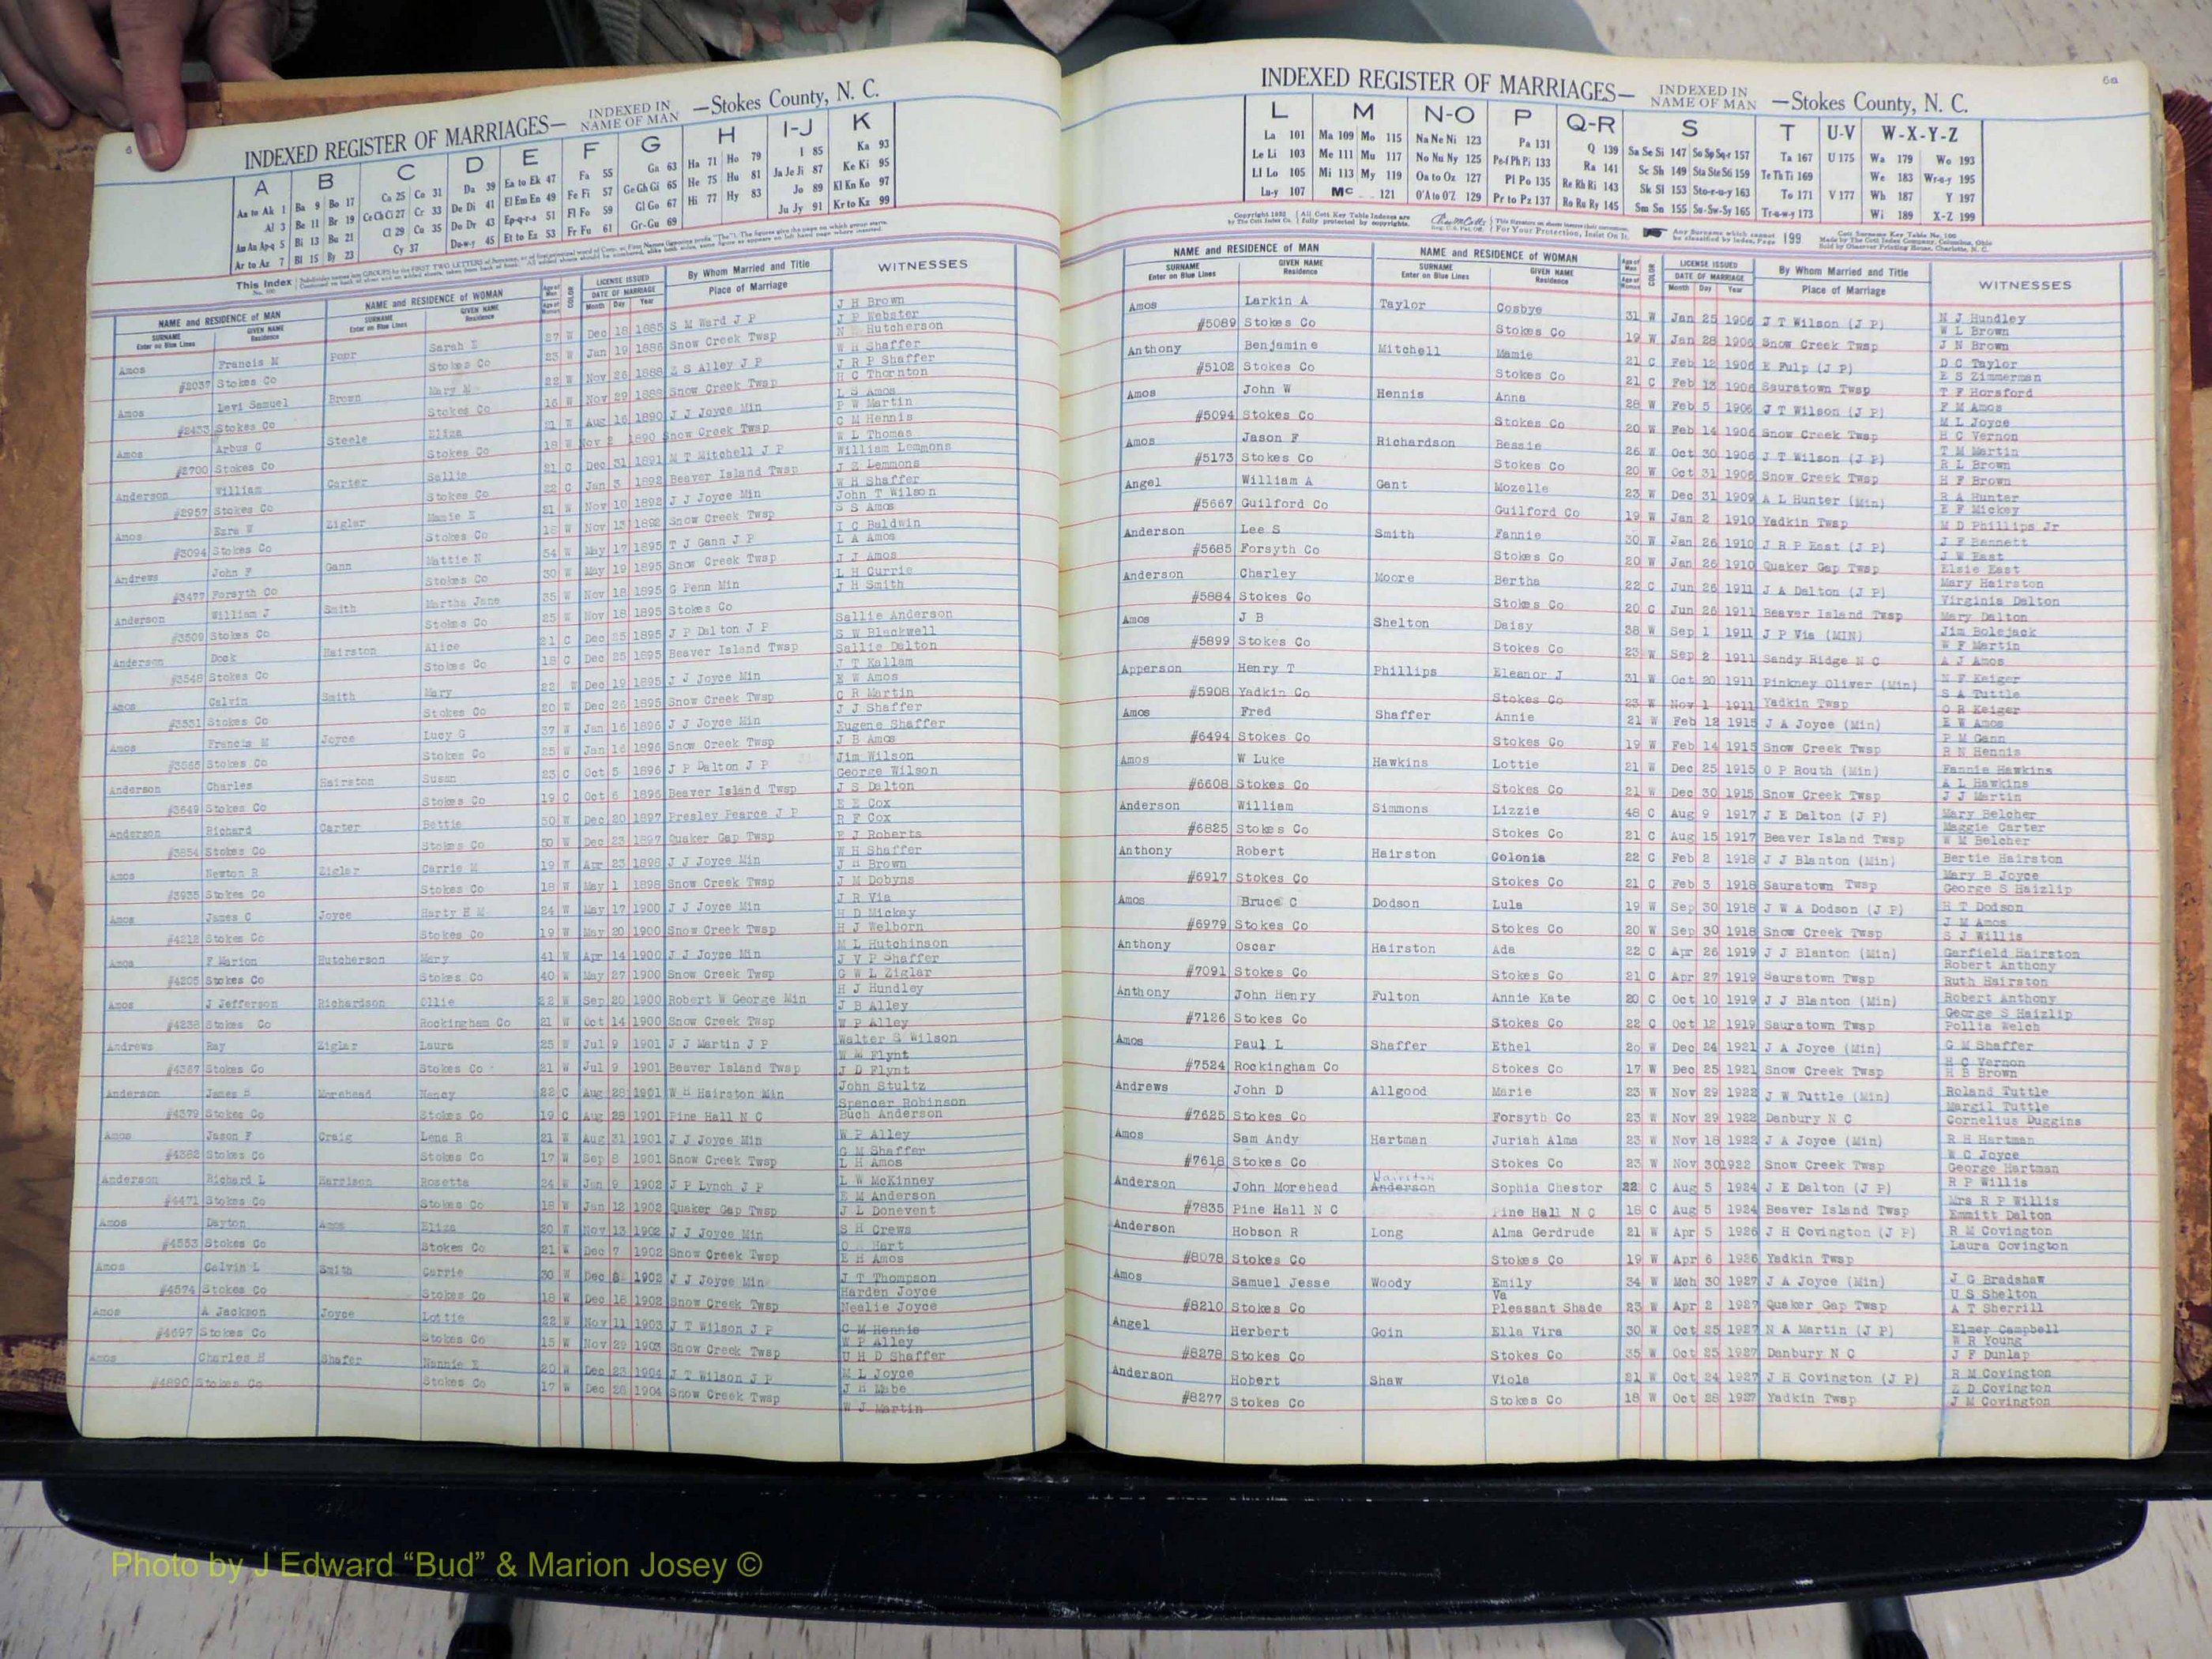 6
INDEXED REGISTER OF MARRIAGES— INDEXED IN NAME OF MAN —Stokes County, N. C.
A B C D E F G H I-J K
Aa to Ak 1 Ba 9 Bo 17 Ca 25 Co 31 Da 39 Ea to Ek 47 Fa 55 Ga 63 Ha 71 Ho 79 I 85 Ka 93
Al 3 Be 11 Br 19 Ce Ch Ci 27 Cr 33 De Di 41 El Em En 49 Fe Fi 57 Ge Gh Gi 65 He 75 Hu 81 Ja Je Ji 87 Ke Ki 95
Am An Ap-q 5 Bi 13 Bu 21 Cl 29 Cu 35 Do Dr 43 Ep-q-r-s 51 Fl Fo 59 Gl Go 67 Hi 77 Hy 83 Jo 89 Kl Kn Ko 97
Ar to Az 7 Bl 15 By 23 Cy 37 Du-w-y 45 Et to Ez 53 Fr Fu 61 Gr-Gu 69 Ju Jy 91 Kr to Kz 99
This Index
NAME and RESIDENCE of MAN NAME and RESIDENCE of WOMAN COLOR LICENSE ISSUED By Whom Married and Title WITNESSES
SURNAME GIVEN NAME SURNAME GIVEN NAME DATE OF MARRIAGE Place of Marriage
Enter on Blue Lines Residence Enter on Blue Lines Residence Month Day Year
J H Brown
Amos Francis M Popr Sarah E 27 W Dec 18 1885 S M Ward J P J P Webster
#2037 Stokes Co Stokes Co 23 W Jan 19 1886 Snow Creek Twsp Hutcherson
W H Shaffer
Amos Levi Samuel Brown Mary M 22 W Nov 26 1888 Z S Alley J P J R P Shaffer
#2433 Stokes Co Stokes Co 16 W Nov 29 1888 Snow Creek Twsp H C Thornton
L S Amos
Amos Arbus C Steele Eliza 21 W Aug 16 1890 J J Joyce Min P W Martin
#2700 Stokes Co Stokes Co 18 W Nov 2 1890 Snow Creek Twsp C M Hennis
W L Thomas
Anderson William Carter Sallie 21 C Dec 31 1891 M T Mitchell J P William Lemmons
#2957 Stokes Co Stokes Co 22 C Jan 3 1892 Beaver Island Twsp J Z Lemmons
W H Shaffer
Amos Ezra W Ziglar Mamie E 21 W Nov 10 1892 J J Joyce Min John T Wilson
#3094 Stokes Co Stokes Co 18 W Nov 13 1892 Snow Creek Twsp S S Amos
I C Baldwin
Andrews John F Gann Mattie N 54 W May 17 1895 T J Gann J P L A Amos
#3477 Forsyth Co Stokes Co 30 W May 19 1895 Snow Creek Twsp J J Amos
L H Currie
Anderson William J Smith Martha Jane 35 W Nov 18 1895 G Penn Min J H Smith
#3509 Stokes Co Stokes Co 25 W Nov 18 1895 Stokes Co
Sallie Anderson
Anderson Dock Hairston Alice 21 C Dec 25 1895 J P Dalton J P S W Blackwell
#3548 Stokes Co Stokes Co 18 C Dec 25 1895 Beaver Island Twsp Sallie Dalton
J T Kallam
Amos Calvin Smith Mary 22 W Dec 19 1895 J J Joyce Min E W Amos
#3551 Stokes Co Stokes Co 20 W Dec 26 1895 Snow Creek Twsp C R Martin
J J Shaffer
Amos Francis M Joyce Lucy G 37 W Jan 16 1896 J J Joyce Min Eugene Shaffer
#3565 Stokes Co Stokes Co 25 W Jan 16 1896 Snow Creek Twsp J B Amos
Jim Wilson
Anderson Charles Hairston Susan 23 C Oct 5 1896 J P Dalton J P George Wilson
#3649 Stokes Co Stokes Co 19 C Oct 6 1896 Beaver Island Twsp J S Dalton
E E Cox
Anderson Richard Carter Bettie 50 W Dec 20 1897 Presley Pearce J P R F Cox
#3854 Stokes Co Stokes Co 50 W Dec 23 1897 Quaker Gap Twsp E J Roberts
W H Shaffer
Amos Newton R Ziglar Carrie M 19 W Apr 23 1898 J J Joyce Min J H Brown
#3935 Stokes Co Stokes Co 18 W May 1 1898 Snow Creek Twsp J M Dobyns
J R Via
Amos James C Joyce Harty H M 24 W May 17 1900 J J Joyce Min H D Mickey
#4212 Stokes Co Stokes Co 19 W May 20 1900 Snow Creek Twsp H J Welborn
M L Hutchinson
Amos F Marion Hutcherson Mary 41 W Apr 14 1900 J J Joyce Min J V P Shaffer
#4205 Stokes Co Stokes Co 40 W May 27 1900 Snow Creek Twsp G W L Ziglar
H J Hundley
Amos J Jefferson Richardson Ollie 22 W Sep 20 1900 Robert W George Min J B Alley
#4238 Stokes Co Rockingham Co 21 W Oct 14 1900 Snow Creek Twsp W P Alley
Walter S Wilson
Andrews Ray Ziglar Laura 25 W Jul 9 1901 J J Martin J P W M Flynt
#4367 Stokes Co Stokes Co 21 W Jul 9 1901 Beaver Island Twsp J D Flynt
John Stultz
Anderson James B Morehead Nancy 22 C Aug 28 1901 W H Hairston Min Spencer Robinson
#4379 Stokes Co Stokes Co 19 C Aug 28 1901 Pine Hall N C Buch Anderson
W P Alley
Amos Jason F Craig Lena R 21 W Aug 31 1901 J J Joyce Min G M Shaffer
#4382 Stokes Co Stokes Co 17 W Sep 8 1901 Snow Creek Twsp L H Amos
L W McKinney
Anderson Richard L Harrison Rosetta 24 W Jan 9 1902 J P Lynch J P E M Anderson
#4471 Stokes Co Stokes Co 18 W Jan 12 1902 Quaker Gap Twsp J L Donevent
S H Crews
Amos Dayton Amos Eliza 20 W Nov 13 1902 J J Joyce Min Hart
#4553 Stokes Co Stokes Co 21 W Dec 7 1902 Snow Creek Twsp E H Amos
J T Thompson
Amos Calvin L Smith Carrie 30 W Dec 8 1902 J J Joyce Min Harden Joyce
#4574 Stokes Co Stokes Co 18 W Dec 18 1902 Snow Creek Twsp Nealie Joyce
C M Hennis
Amos A Jackson Joyce Lottie 22 W Nov 11 1903 J T Wilson J P W P Alley
#4697 Stokes Co Stokes Co 15 W Nov 29 1903 Snow Creek Twsp U H D Shaffer
M L Joyce
Amos Charles H Shafer Nannie E 20 W Dec 23 1904 J T Wilson J P J H Mabe
#4890 Stokes Co Stokes Co 17 W Dec 28 1904 Snow Creek Twsp W J Martin
6a
INDEXED REGISTER OF MARRIAGES— INDEXED IN NAME OF MAN —Stokes County, N. C.
L M N-O P Q-R S T U-V W-X-Y-Z
La 101 Ma 109 Mo 115 Na Ne Ni 123 Pa 131 Q 139 Sa Se Si 147 So Sp Sq-r 157 Ta 167 U 175 Wa 179 Wo 193
Le Li 103 Me 111 Mu 117 No Nu Ny 125 Pe-f Ph Pi 133 Ra 141 Sc Sh 149 Sta Ste Sti 159 Te Th Ti 169 We 183 Wr-u-y 195
Ll Lo 105 Mi 113 My 119 Oa to Oz 127 Pl Po 135 Re Rh Ri 143 Sk Sl 153 Sto-r-u-y 163 To 171 V 177 Wh 187 Y 197
Lu-y 107 Mc 121 O'A to O'Z 129 Pr to Pz 137 Ro Ru Ry 145 Sm Sn 155 Su-Sw-Sy 165 Tr-u-w-y 173 Wi 189 X-Z 199
Copyright 1932 All Cott Key Table Indexes are fully protected by copyrights. For Your Protection, Insist On It. Any Surname which cannot be classified by Index, Page 199 Cott Surname Key Table No. 100
by The Cott Index Co. Made by The Cott Index Company, Columbus, Ohio
Sold by Observer Printing House, Charlotte, N. C.
NAME and RESIDENCE of MAN NAME and RESIDENCE of WOMAN COLOR LICENSE ISSUED By Whom Married and Title WITNESSES
SURNAME GIVEN NAME SURNAME GIVEN NAME DATE OF MARRIAGE Place of Marriage
Enter on Blue Lines Residence Enter on Blue Lines Residence Month Day Year
Amos Larkin A Taylor Cosbye 31 W Jan 25 1906 J T Wilson (J P) N J Hundley
W L Brown
#5089 Stokes Co Stokes Co 19 W Jan 28 1906 Snow Creek Twsp J N Brown
Anthony Benjamine Mitchell Mamie 21 C Feb 12 1906 E Fulp (J P) D C Taylor
E S Zimmerman
#5102 Stokes Co Stokes Co 21 C Feb 13 1906 Sauratown Twsp T F Horsford
Amos John W Hennis Anna 28 W Feb 5 1906 J T Wilson (J P) F M Amos
M L Joyce
#5094 Stokes Co Stokes Co 20 W Feb 14 1906 Snow Creek Twsp H C Vernon
Amos Jason F Richardson Bessie 26 W Oct 30 1906 J T Wilson (J P) T M Martin
R L Brown
#5173 Stokes Co Stokes Co 20 W Oct 31 1906 Snow Creek Twsp H F Brown
Angel William A Gant Mozelle 23 W Dec 31 1909 A L Hunter (Min) R A Hunter
E F Mickey
#5667 Guilford Co Guilford Co 19 W Jan 2 1910 Yadkin Twsp M D Phillips Jr
Anderson Lee S Smith Fannie 30 W Jan 26 1910 J R P East (J P) J F Bennett
J W East
#5685 Forsyth Co Stokes Co 20 W Jan 26 1910 Quaker Gap Twsp Elsie East
Anderson Charley Moore Bertha 22 C Jun 26 1911 J A Dalton (J P) Mary Hairston
Virginia Dalton
#5884 Stokes Co Stokes Co 20 C Jun 26 1911 Beaver Island Twsp Mary Dalton
Amos J B Shelton Daisy 38 W Sep 1 1911 J P Via (MIN) Jim Bolejack
W F Martin
#5899 Stokes Co Stokes Co 23 W Sep 2 1911 Sandy Ridge N C A J Amos
Apperson Henry T Phillips Eleanor J 31 W Oct 20 1911 Pinkney Oliver (Min) N F Keiger
S A Tuttle
#5908 Yadkin Co Stokes Co 23 W Nov 1 1911 Yadkin Twsp O R Keiger
Amos Fred Shaffer Annie 21 W Feb 12 1915 J A Joyce (Min) E W Amos
P M Gann
#6494 Stokes Co Stokes Co 19 W Feb 14 1915 Snow Creek Twsp R N Hennis
Amos W Luke Hawkins Lottie 21 W Dec 25 1915 O P Routh (Min) Fannie Hawkins
A L Hawkins
#6608 Stokes Co Stokes Co 21 W Dec 30 1915 Snow Creek Twsp J J Martin
Anderson William Simmons Lizzie 48 C Aug 9 1917 J E Dalton (J P) Mary Belcher
Maggie Carter
#6825 Stokes Co Stokes Co 21 C Aug 15 1917 Beaver Island Twsp W M Belcher
Anthony Robert Hairston Colonia 22 C Feb 2 1918 J J Blanton (Min) Bertie Hairston
Mary B Joyce
#6917 Stokes Co Stokes Co 21 C Feb 3 1918 Sauratown Twsp George S Haizlip
Amos Bruce C Dodson Lula 19 W Sep 30 1918 J W A Dodson (J P) H T Dodson
J M Amos
#6979 Stokes Co Stokes Co 20 W Sep 30 1918 Snow Creek Twsp S J Willis
Anthony Oscar Hairston Ada 22 C Apr 26 1919 J J Blanton (Min) Garfield Hairston
Robert Anthony
#7091 Stokes Co Stokes Co 21 C Apr 27 1919 Sauratown Twsp Ruth Hairston
Anthony John Henry Fulton Annie Kate 20 C Oct 10 1919 J J Blanton (Min) Robert Anthony
George S Haizlip
#7126 Stokes Co Stokes Co 22 C Oct 12 1919 Sauratown Twsp Pollia Welch
Amos Paul L Shaffer Ethel 20 W Dec 24 1921 J A Joyce (Min) G M Shaffer
H C Vernon
#7524 Rockingham Co Stokes Co 17 W Dec 25 1921 Snow Creek Twsp H B Brown
Andrews John D Allgood Marie 23 W Nov 29 1922 J W Tuttle (Min) Roland Tuttle
Margil Tuttle
#7625 Stokes Co Forsyth Co 23 W Nov 29 1922 Danbury N C Cornelius Duggins
Amos Sam Andy Hartman Juriah Alma 23 W Nov 18 1922 J A Joyce (Min) R H Hartman
W C Joyce
#7618 Stokes Co Stokes Co 23 W Nov 30 1922 Snow Creek Twsp George Hartman
Hairston
Anderson John Morehead Anderson Sophia Chestor 22 C Aug 5 1924 J E Dalton (J P) R P Willis
Mrs R P Willis
#7835 Pine Hall N C Pine Hall N C 18 C Aug 5 1924 Beaver Island Twsp Emmitt Dalton
Anderson Hobson R Long Alma Gerdrude 21 W Apr 5 1926 J H Covington (J P) R M Covington
Laura Covington
#8078 Stokes Co Stokes Co 19 W Apr 6 1926 Yadkin Twsp
Amos Samuel Jesse Woody Emily 34 W Mch 30 1927 J A Joyce (Min) J G Bradshaw
Va U S Shelton
#8210 Stokes Co Pleasant Shade 23 W Apr 2 1927 Quaker Gap Twsp A T Sherrill
Angel Herbert Goin Ella Vira 30 W Oct 25 1927 N A Martin (J P) Elmer Campbell
W R Young
#8278 Stokes Co Stokes Co 35 W Oct 25 1927 Danbury N C J F Dunlap
Anderson Hobert Shaw Viola 21 W Oct 24 1927 J H Covington (J P) R M Covington
Z D Covington
#8277 Stokes Co Stokes Co 18 W Oct 26 1927 Yadkin Twsp J M Covington
Photo by J Edward “Bud” & Marion Josey ©